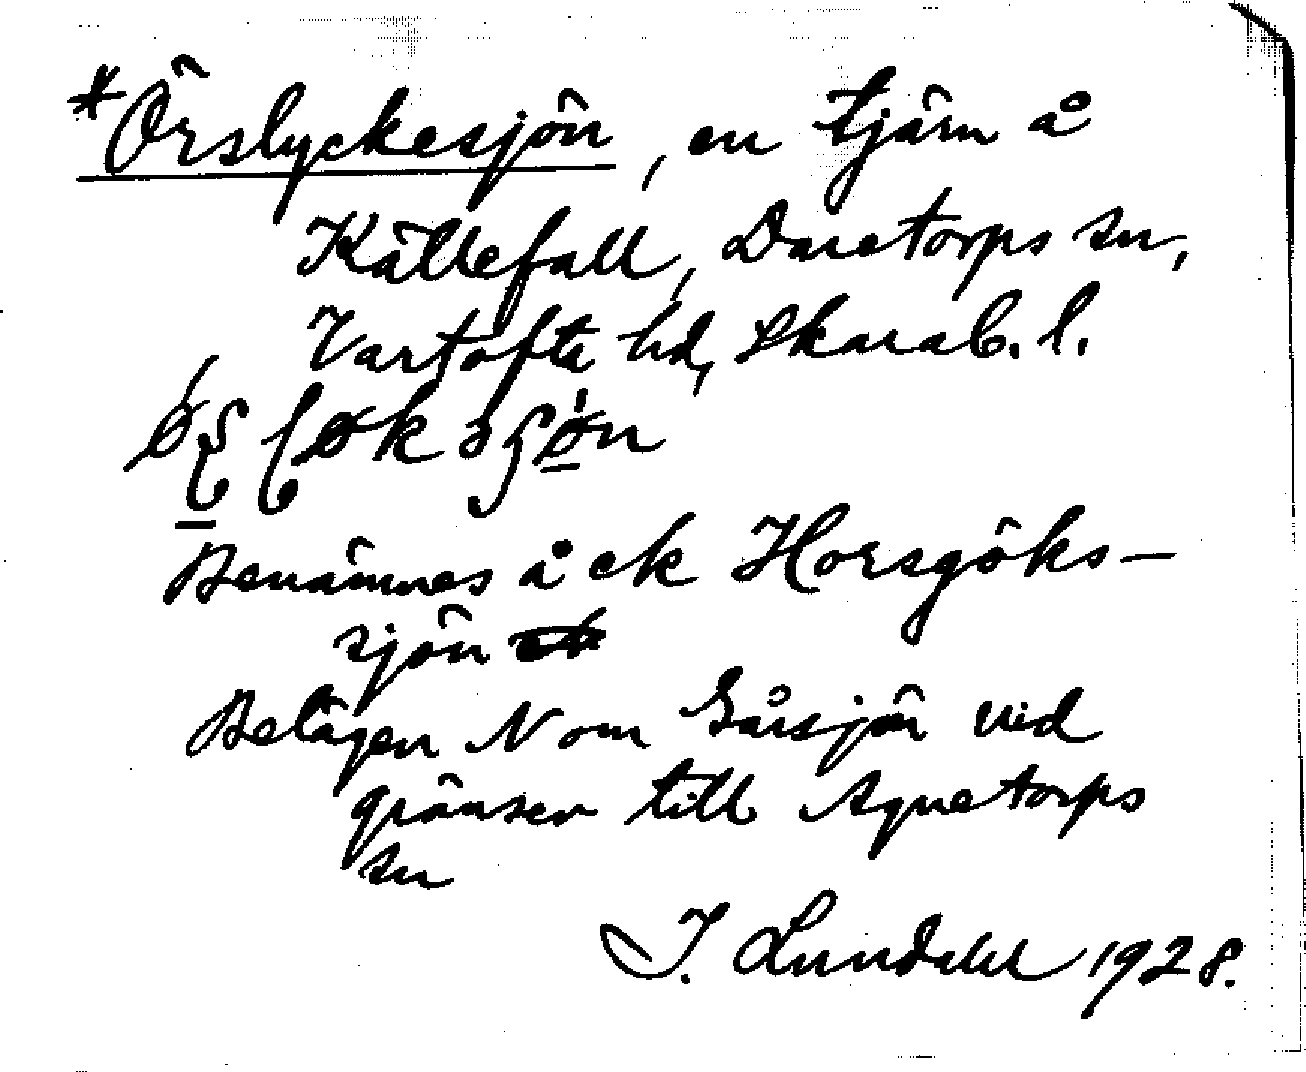 *Örslyckesjön, en tjärn å
Källefall, Daretorps sn,
Vartofta hd, Skarab. l.
Benämnes å ek Horsgöks-
sjön
Belägen N om Gåsjön vid
gränsen till Agnetorps
sn
I. Lundahl 1928.